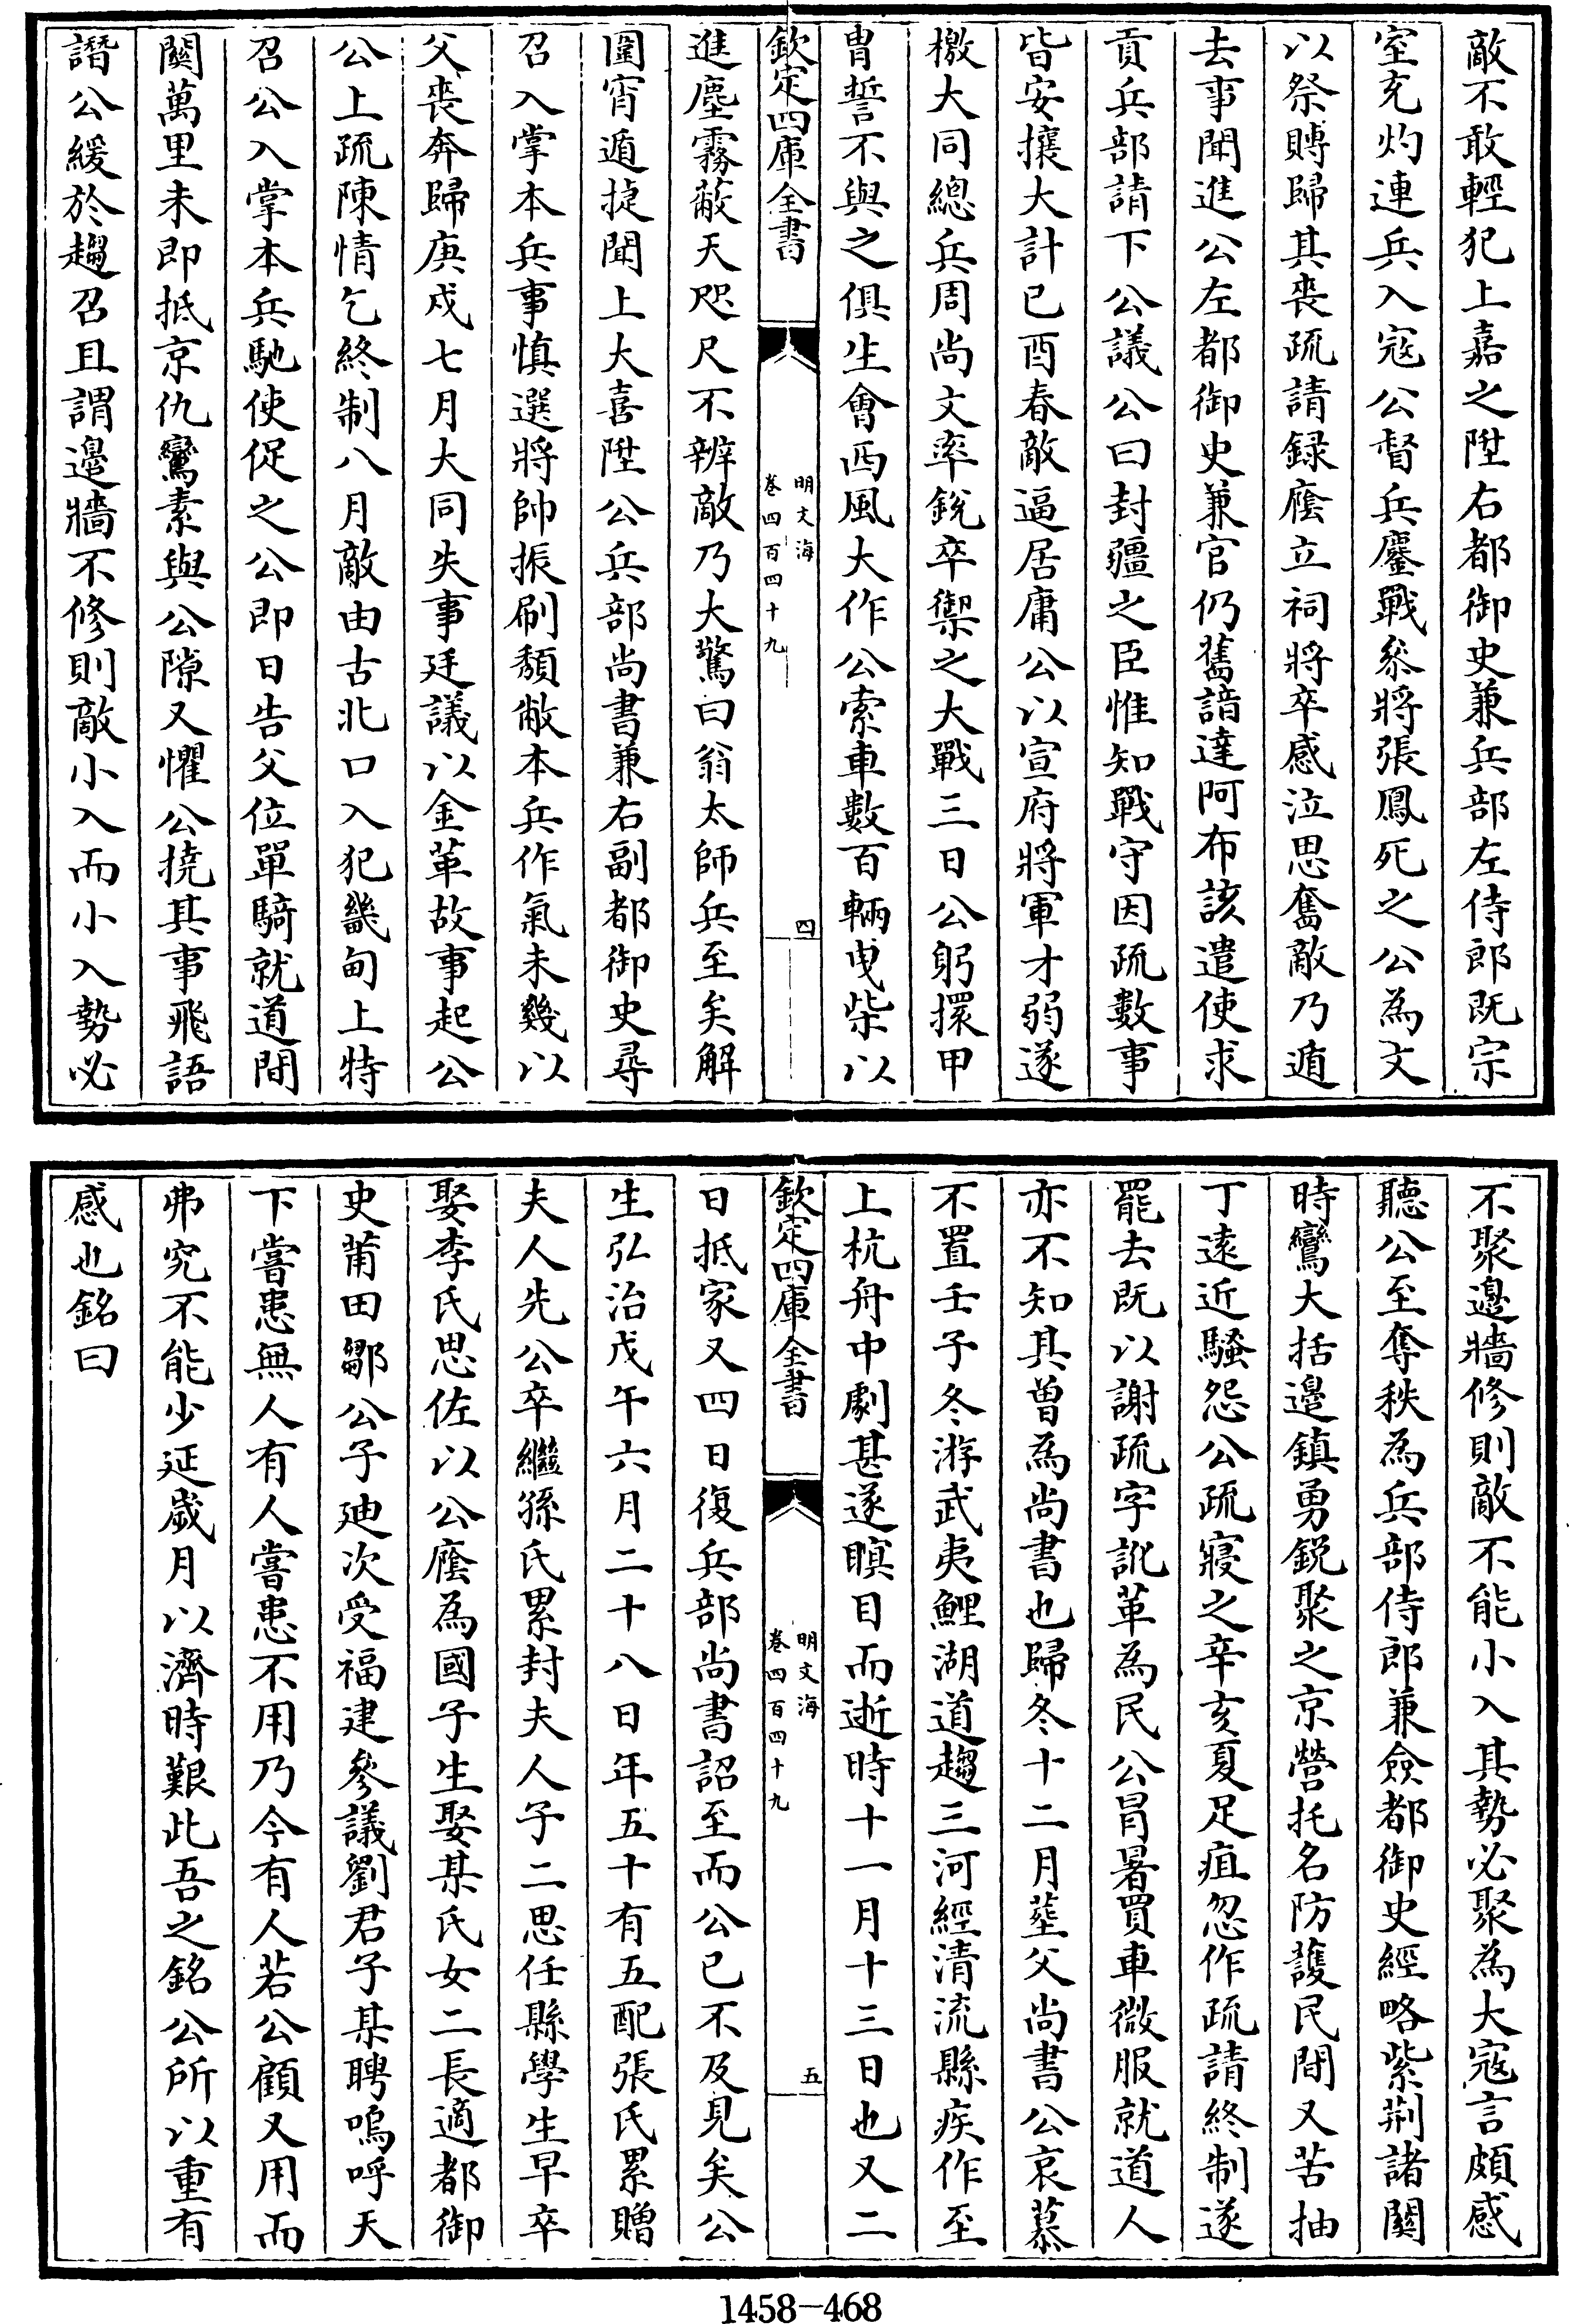 敵不敢輕犯上嘉之陞右都御史兼兵部左侍郎既宗
室充灼連兵入寇公督兵鏖戰叅將張鳳死之公為文
以祭賻歸其喪疏請録廕立祠將卒感泣思奮敵乃遁
去事聞進公左都御史兼官仍舊諳達阿布該遣使求
貢兵部請下公議公曰封疆之臣惟知戰守因疏數事
皆安攘大計已酉春敵逼居庸公以宣府將軍才弱遂
檄大同總兵周尚文率銳卒禦之大戰三日公躬擐甲
胄誓不與之俱生會西風大作公索車數百輛曳柴以
欽定四庫全書
明文海
卷四百四十九
四
進塵霧蔽天咫尺不辨敵乃大驚曰翁太師兵至矣解
圍宵遁捷聞上大喜陞公兵部尚書兼右副都御史尋
召入掌本兵事慎選將帥振刷頽敝本兵作氣未幾以
父喪奔歸庚戌七月大同失事廷議以金革故事起公
公上疏陳情乞終制八月敵由古北口入犯畿甸上特
召公入掌本兵馳使促之公即日告父位單騎就道間
關萬里未即抵京仇鸞素與公隙又懼公撓其事飛語
譖公緩於趨召且謂邉牆不修則敵小入而小入勢必
不聚邉牆修則敵不能小入其勢必聚為大寇言頗感
聽公至奪秩為兵部侍郎兼僉都御史經略紫荆諸關
時鸞大括邉鎮勇銳聚之京營托名防護民間又苦抽
丁遠近騷怨公疏寢之辛亥夏足疽忽作疏請終制遂
罷去既以謝疏字訛革為民公冒暑買車微服就道人
亦不知其曽為尚書也歸冬十二月塟父尚書公哀慕
不置壬子冬游武夷鯉湖道趨三河經清流縣疾作至
上杭舟中劇甚遂瞑目而逝時十一月十三日也又二
欽定四庫全書
明文海
卷四百四十九
五
日抵家又四日復兵部尚書詔至而公已不及見矣公
生弘治戊午六月二十八日年五十有五配張氏累贈
夫人先公卒繼孫氏累封夫人子二思任縣學生早卒
娶李氏思佐以公廕為國子生娶某氏女二長適都御
史莆田鄒公子廸次受福建參議劉君子某聘嗚呼天
下嘗患無人有人嘗患不用乃今有人若公顧又用而
弗究不能少延歲月以濟時艱此吾之銘公所以重有
感也銘曰
1458-468